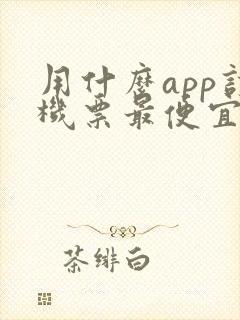 用什麼app訂
機票最便宜
茶緋白